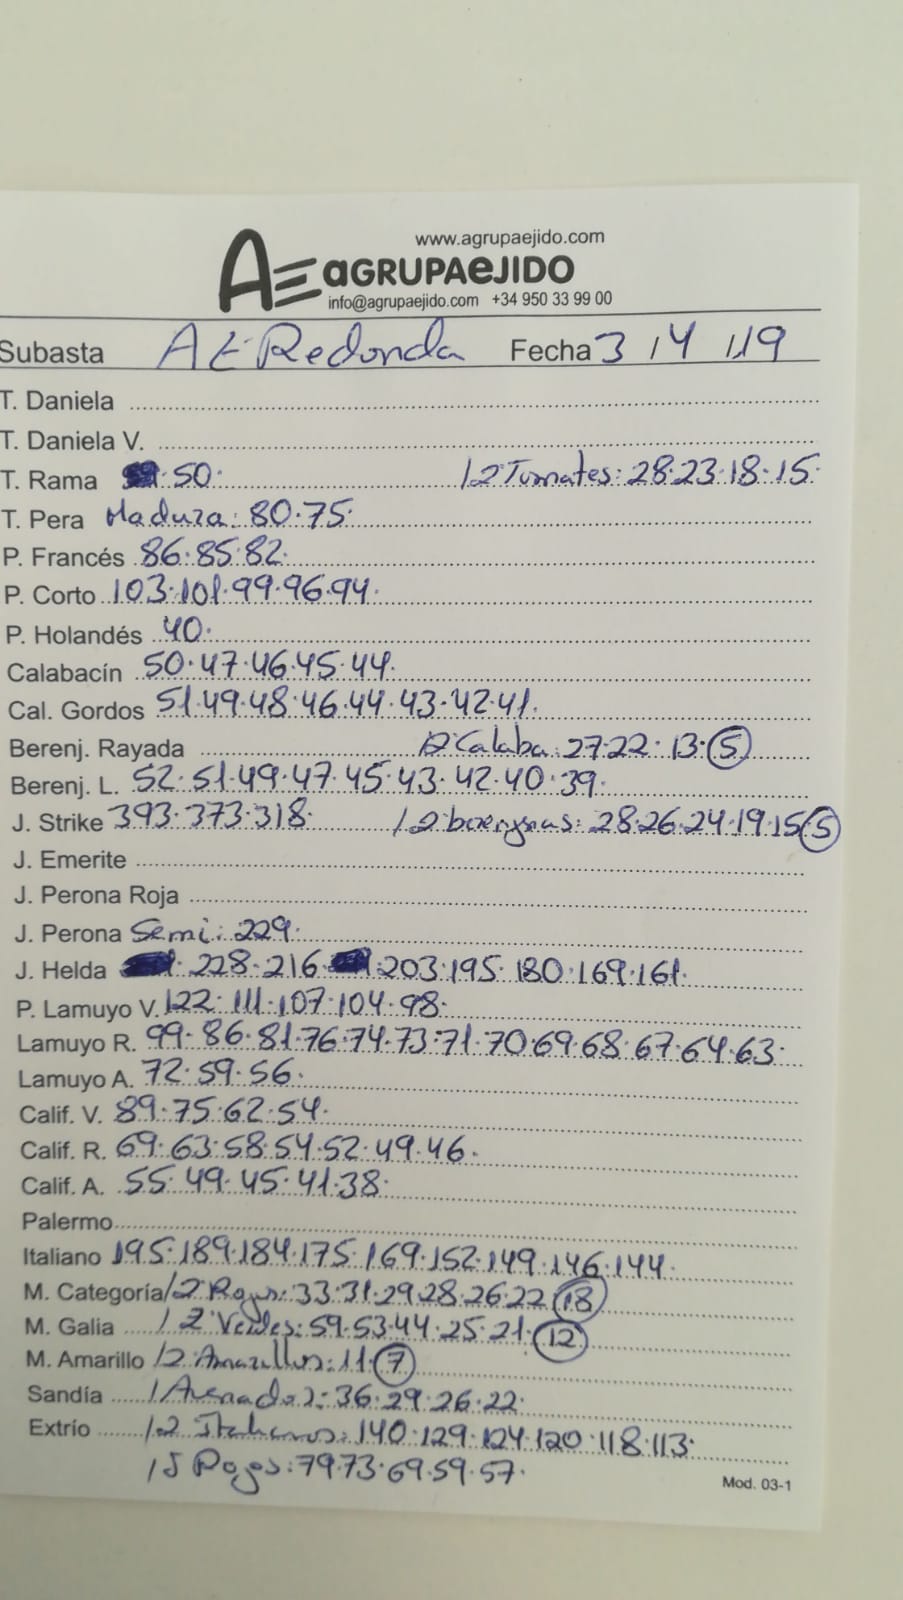 www.agrupaejido.com
AE AGRUPAEJIDO
info@agrupaejido.com +34 950 33 99 00
Subasta AE Redonda Fecha 3 / 4 / 19
T. Daniela
T. Daniela V.
T. Rama 50. Tomates: 28.23.18.15.
T. Pera Madura: 80.75.
P. Francés 86.85.82.
P. Corto 103.101.99.96.94.
P. Holandés 40.
Calabacín 50.47.46.45.44.
Cal. Gordos 51.49.48.46.44.43.42.41.
Berenj. Rayada Calaba: 27.22.13.5
Berenj. L. 52.51.49.47.45.43.42.40.39.
J. Strike 393.373.318. 28.26.24.19.15 5
J. Emerite
J. Perona Roja
J. Perona Semi: 229.
J. Helda 228.216. 203.195.180.169.161.
P. Lamuyo V. 122.111.107.104.98.
Lamuyo R. 99.86.81.76.74.73.71.70.69.68.67.64.63.
Lamuyo A. 72.59.56.
Calif. V. 89.75.62.54.
Calif. R. 69.63.58.54.52.49.46.
Calif. A. 55.49.45.41.38.
Palermo
Italiano 195.189.184.175.169.152.149.146.144.
M. Categoría Rojos: 33.31.29.28.26.22 18
M. Galia Verdes: 59.53.44.25.21. 12
M. Amarillo Amarillos: 11. 7
Sandía 36.29.26.22.
Extrío Italianos: 140.129.124.120.118.113.
Rojos: 79.73.69.59.57.
Mod. 03-1